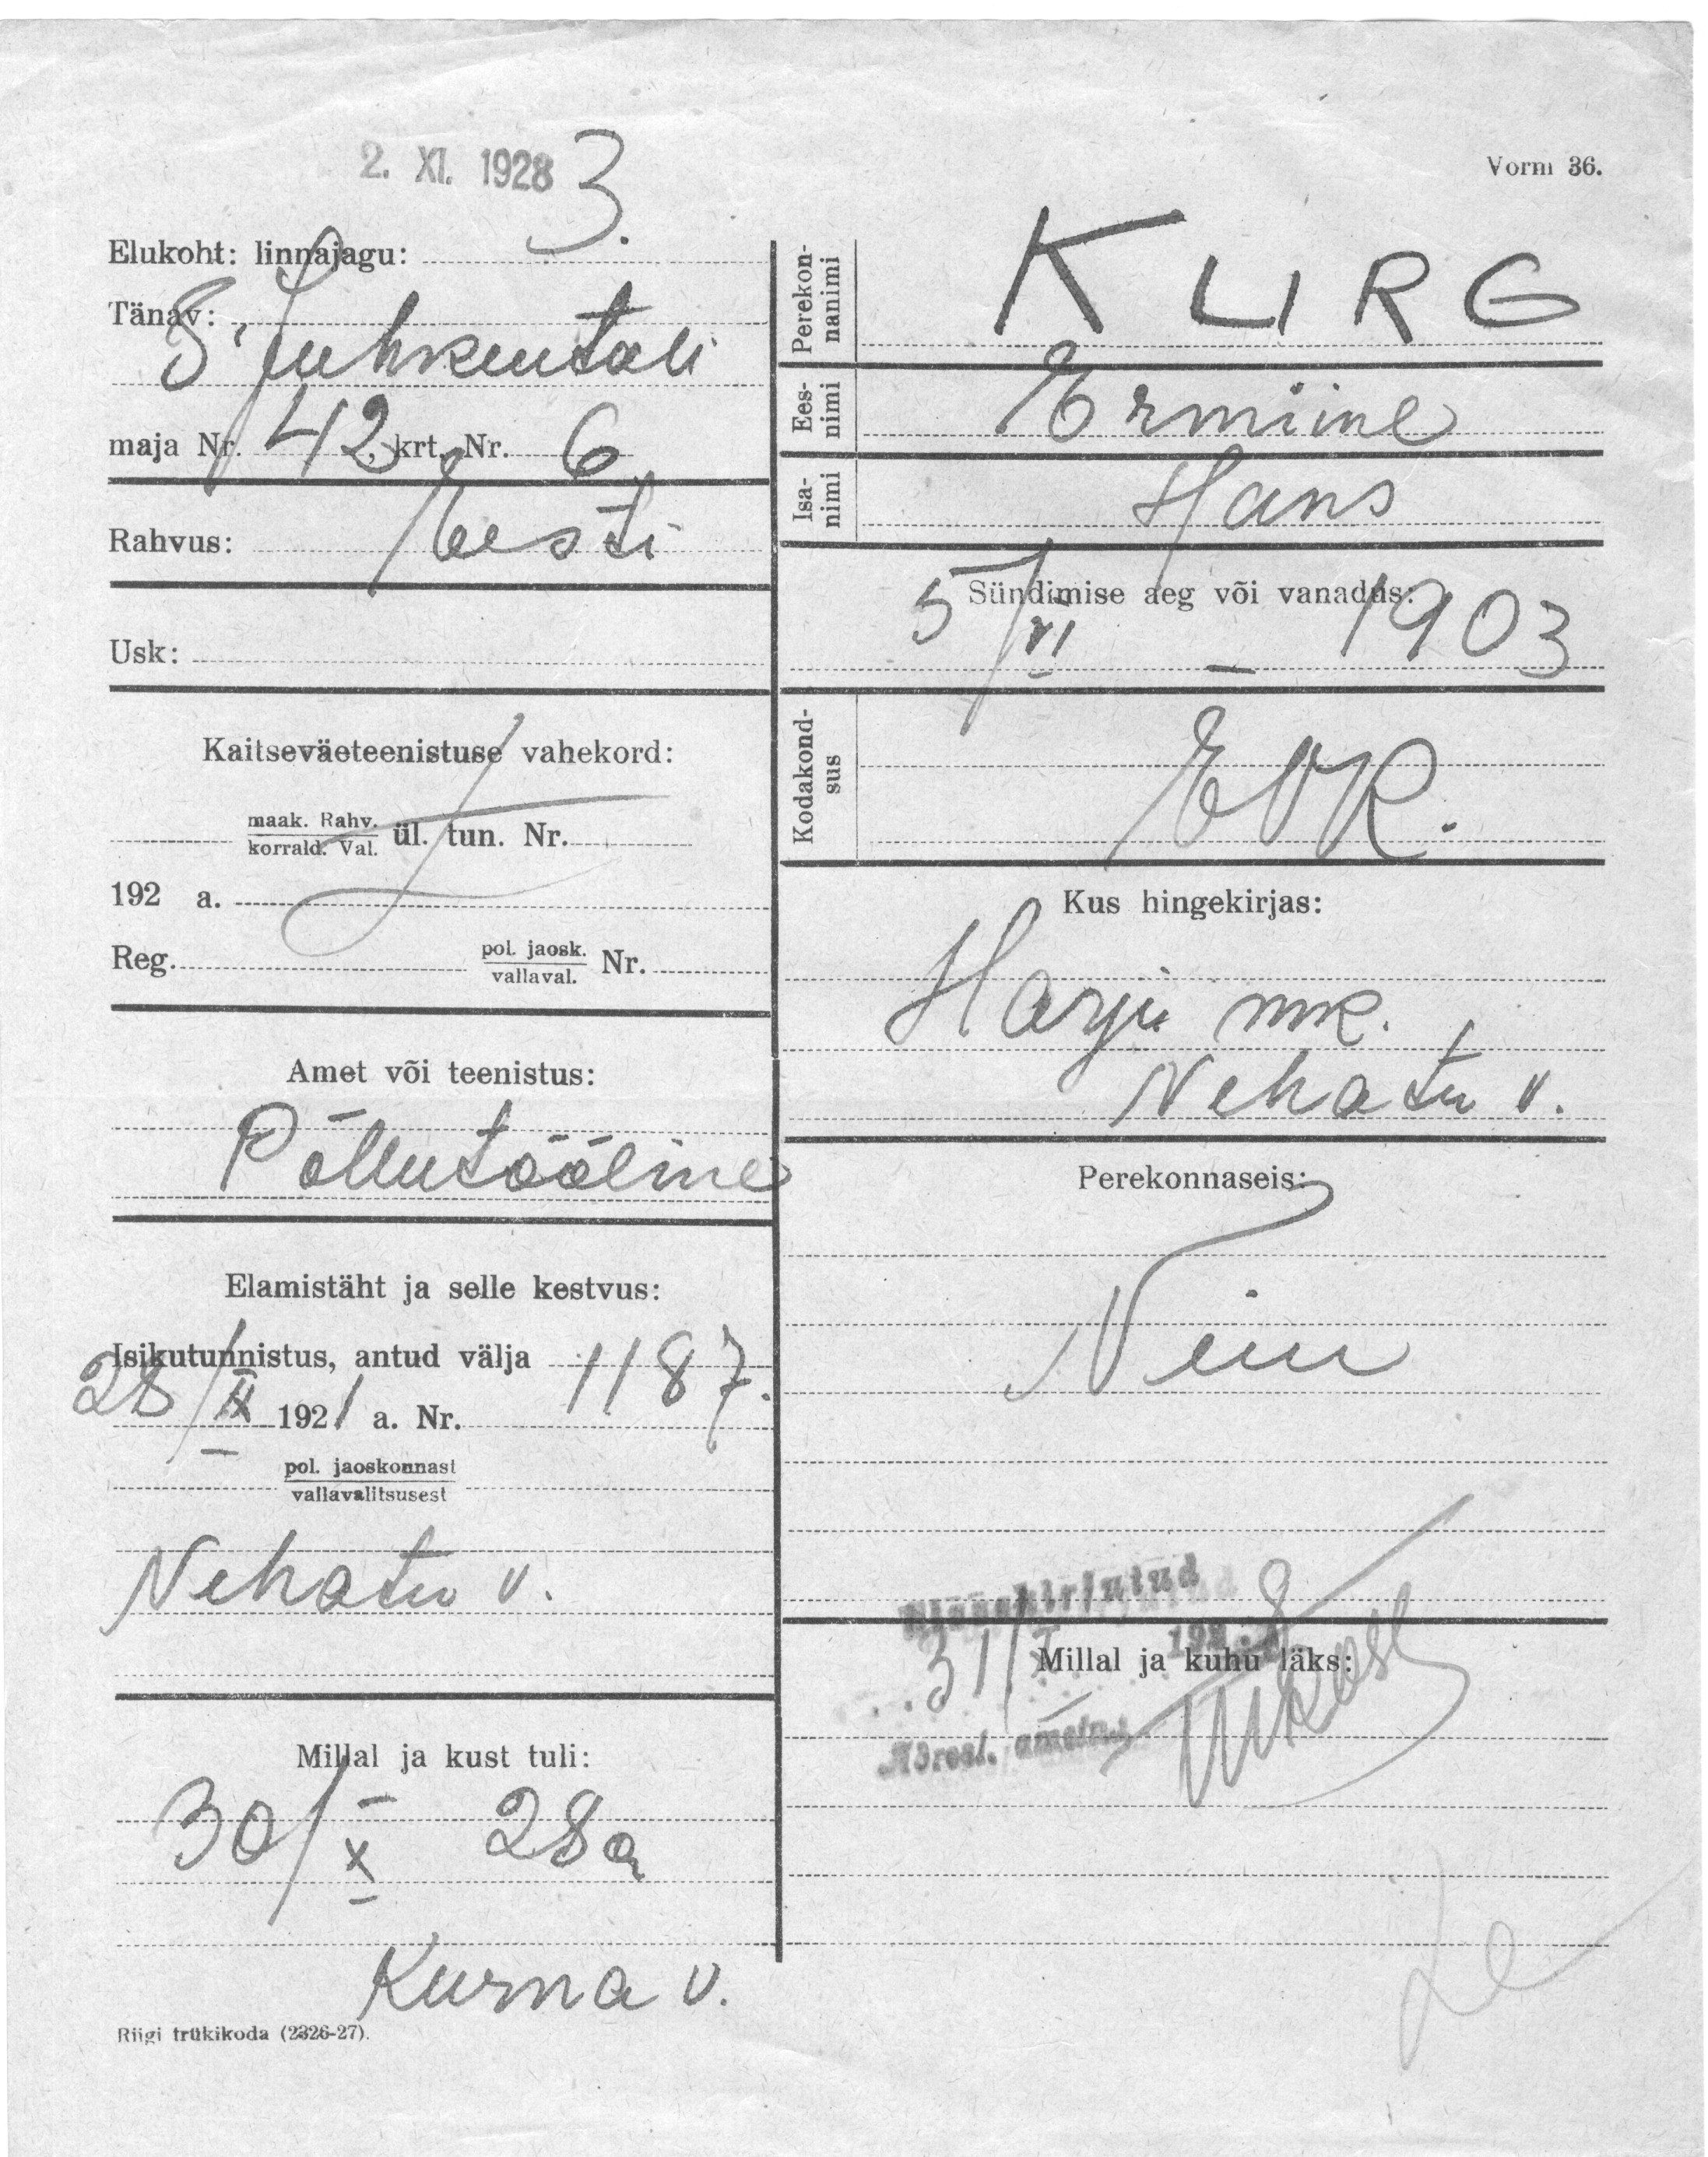 2. XI. 1928
Vorm 36.
Elukoht: linnajagu: 3.
Tänav: S. Juhkentali
maja Nr. 42, krt. Nr. 6
Rahvus: Eesti
Usk:
Kaitseväeteenistuse vahekord:
maak. Rahv.
korrald. Val. ül. tun. Nr.
192 a.
Reg. pol. jaosk.
vallaval. Nr.
Amet või teenistus:
Põllutööline
Elamistäht ja selle kestvus:
Isikutunnistus, antud välja
28/II 1921 a. Nr. 1187.
pol. jaoskonnast
vallavalitsusest
Nehatu v.
Millal ja kust tuli:
30/X 28 a
Kurna v.
Riigi trükikoda (2326-27).
Perekon-
nanimi
KURG
Ees-
nimi
Ermiine
Isa-
nimi
Hans
Sündimise aeg või vanadus:
5/VI – 1903
Kodakond-
sus
EVR.
Kus hingekirjas:
Harju mk.
Nehatu v.
Perekonnaseis:
Neiu
Sissekirjutud
31/X 1928
Millal ja kuhu läks: